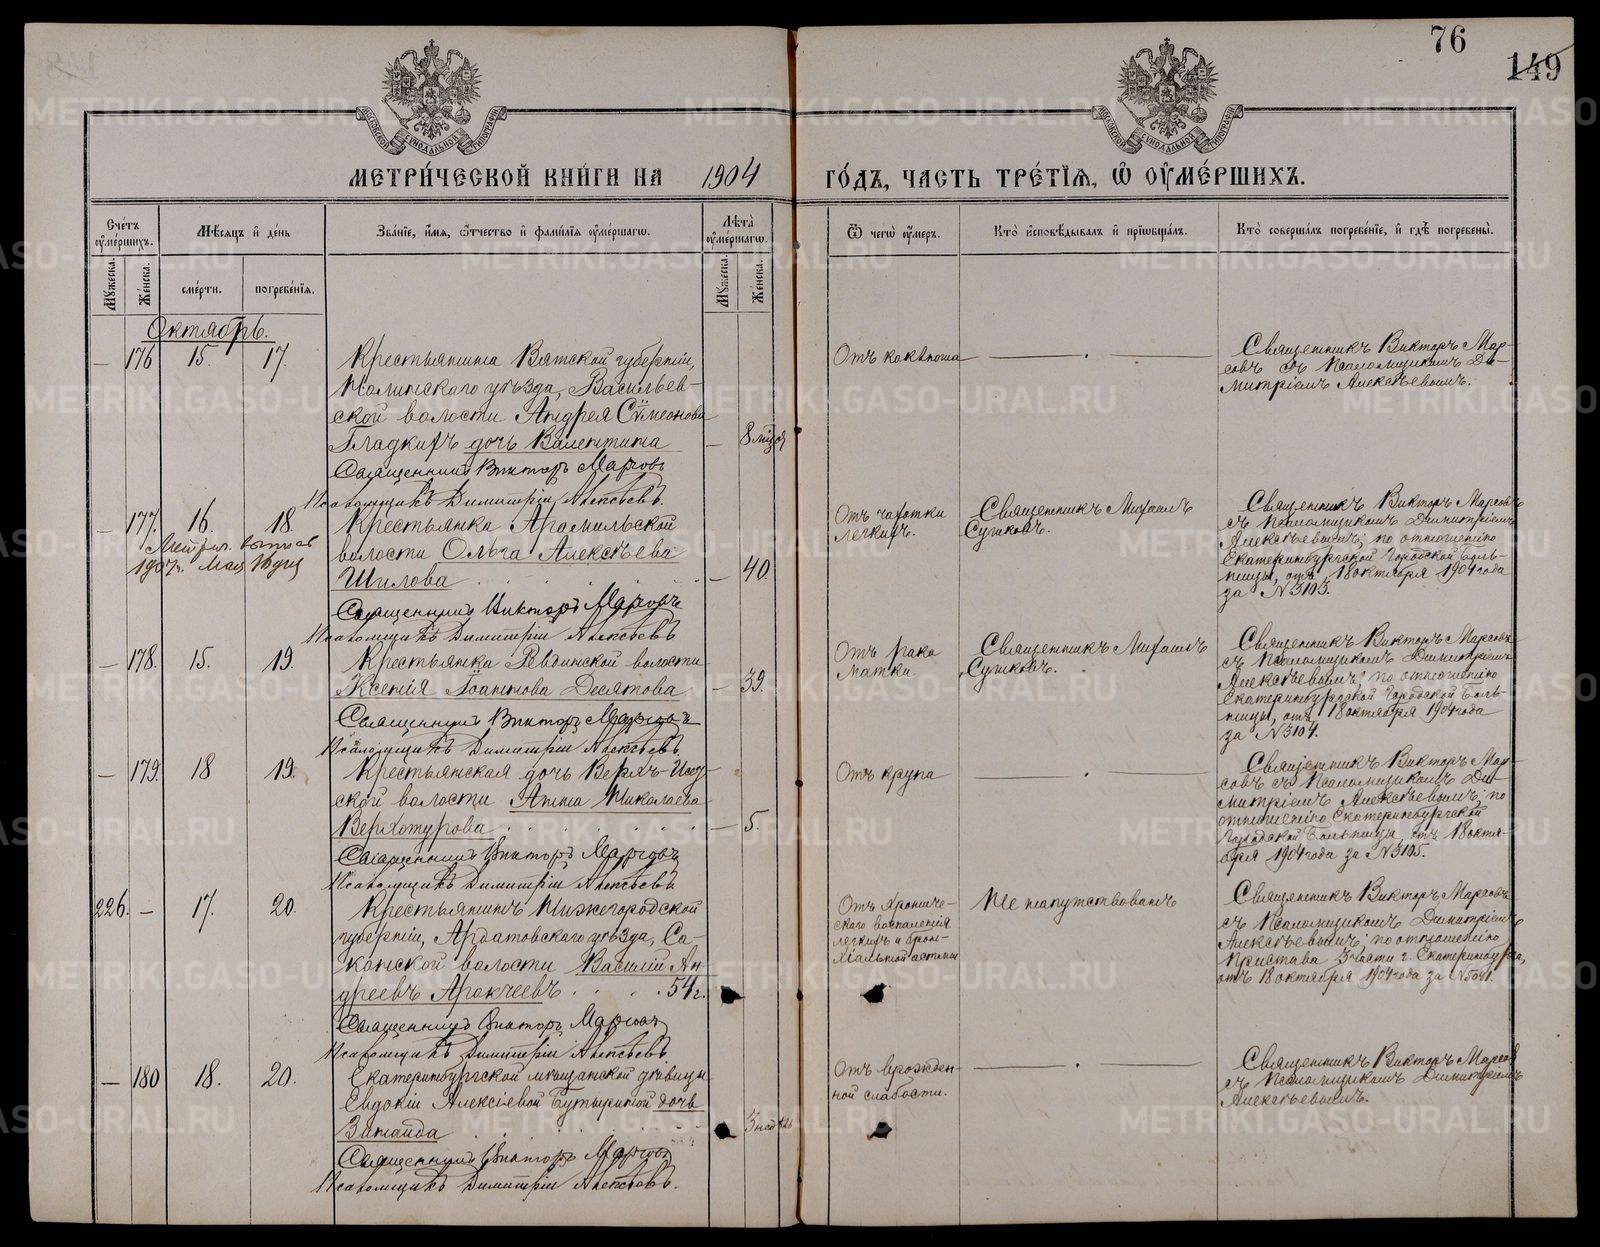 76
149
МЕТРИ́ЧЕСКОЙ КНИ́ГИ НА 1904 ГО́ДЪ, ЧАСТЬ ТРЕ́ТІѦ, Ѡ ОУМЕ́РШИХЪ.
Сче́тъ оуме́ршихъ.
Мѣ́сяцъ и де́нь
Зва́ніе, и́мя, о́тчество и фами́лія оуме́ршагѡ.
Лѣта̀ оуме́ршагѡ.
Ѿ чегѡ̀ оу́меръ.
Кто̀ исповѣ́дывалъ и пріѡбща́лъ.
Кто̀ соверша́лъ погребе́ніе, и гдѣ̀ погребены̀.
Му́жеска.
Же́нска.
сме́рти.
погребе́нія.
Му́жеска.
Же́нска.
Октябрь.
— 176 15. 17.
Крестьянина Вятской губерніи,
Нолинскаго уѣзда, Васильев-
ской волости Андрея Сѷмеонова
Гладкихъ дочь Валентина
— 8 мѣся
Священникъ Викторъ Марсовъ
Псаломщикъ Димитрій Алексѣевъ
Отъ коклюша
Священникъ Викторъ Мар-
совъ съ Псаломщикомъ Ди-
митріемъ Алексѣевымъ.
— 177. 16. 18.
1907г.
Крестьянка Арамильской
волости Ольга Алексѣева
Шилова
— 40.
Священникъ Викторъ Марсовъ
Псаломщикъ Димитрій Алексѣевъ
Отъ чахотки
легкихъ.
Священникъ Михаилъ
Сушковъ.
Священникъ Викторъ Марсовъ
съ Псаломщикомъ Димитріемъ
Алексѣевымъ; по отношенію
Екатеринбургской Городской Боль-
ницы, отъ 18 октября 1904 года
за N 3103.
— 178. 15. 19.
Крестьянка Ревдинской волости
Ксенія Іоаннова Десятова
— 39.
Священникъ Викторъ Марсовъ
Псаломщикъ Димитрій Алексѣевъ
Отъ рака
матки
Священникъ Михаилъ
Сушковъ.
Священникъ Викторъ Марсовъ
съ Псаломщикомъ Димитріемъ
Алексѣевымъ; по отношенію
Екатеринбургской Городской Боль-
ницы, отъ 18 октября 1904 года
за N 3104.
— 179. 18 19.
Крестьянская дочь Верхъ-Исет-
ской волости Анна Николаева
Верхотурова
— 5.
Священникъ Викторъ Марсовъ
Псаломщикъ Димитрій Алексѣевъ
Отъ крупа
Священникъ Викторъ Мар-
совъ съ Псаломщикомъ Ди-
митріемъ Алексѣевымъ; по
отношенію Екатеринбургской
Городской Больницы, отъ 18 октя-
бря 1904 года за N 3105.
226. — 17. 20.
Крестьянинъ Нижегородской
губерніи, Ардатовскаго уѣзда, Са-
конской волости Василій Ан-
дреевъ Аракчеевъ . . . . 54 г.
Священникъ Викторъ Марсовъ
Псаломщикъ Димитрій Алексѣевъ
Отъ хрониче-
скаго воспаленія
легкихъ и брон-
хіальной астмы
Не напутствованъ
Священникъ Викторъ Марсовъ
съ Псаломщикомъ Димитріемъ
Алексѣевымъ; по отношенію
Пристава 3 части г. Екатеринбурга,
отъ 18 октября 1904 года за N 5041.
— 180 18. 20.
Екатеринбургской мѣщанской дѣвицы
Евдокіи Алексіевой Бутыриной дочь
Зинаида
3 нед
Священникъ Викторъ Марсовъ
Псаломщикъ Димитрій Алексѣевъ.
Отъ врожден-
ной слабости.
Священникъ Викторъ Марсовъ
съ Псаломщикомъ Димитріемъ
Алексѣевымъ.
METRIKI.GASO-URAL.RU